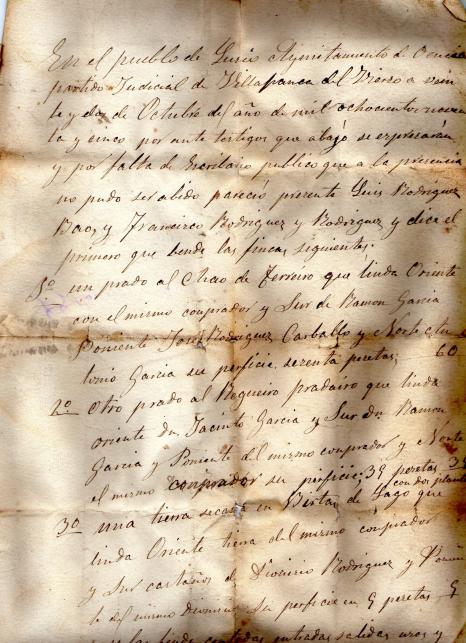 En el pueblo de Lusio Ayuntamiento de Oencia
partido Judicial de Villafranca del Vierzo a vein
te y dos de Octubre del año de mil ochocientos noven
ta y cinco por ante testigos que abajo se expresarán
y por falta de Escribano publico que a la presencia
no pudo ser abido pareció presente Luis Rodriguez
Bao, y Francisco Rodriguez y Rodriguez y dice el
primero que bende las fincas siguientes.
un prado al Chao de Ferreiro que linda Oriente
con el mismo conprador y Sur de Ramon Garcia
Poniente José Rodriguez Carballo y Norte An
tonio Garcia su perficie sezenta pezetas, 60
2º Otro prado al Regueiro pradairo que linda
oriente dn Jacinto Garcia y Sur dn Ramon
Garcia y Poniente del mismo conprador y Norte
el mismo conprador su perficie, 39 pezetas 39
con dos plantas
3º una tierra secana en de Gago que
linda Oriente tierra del mismo conprador
y Sur castaños de Dionicio Rodriguez y Ponien
te del mismo Dionicio su perficie en 9 pezetas 9
entradas salidas usos y